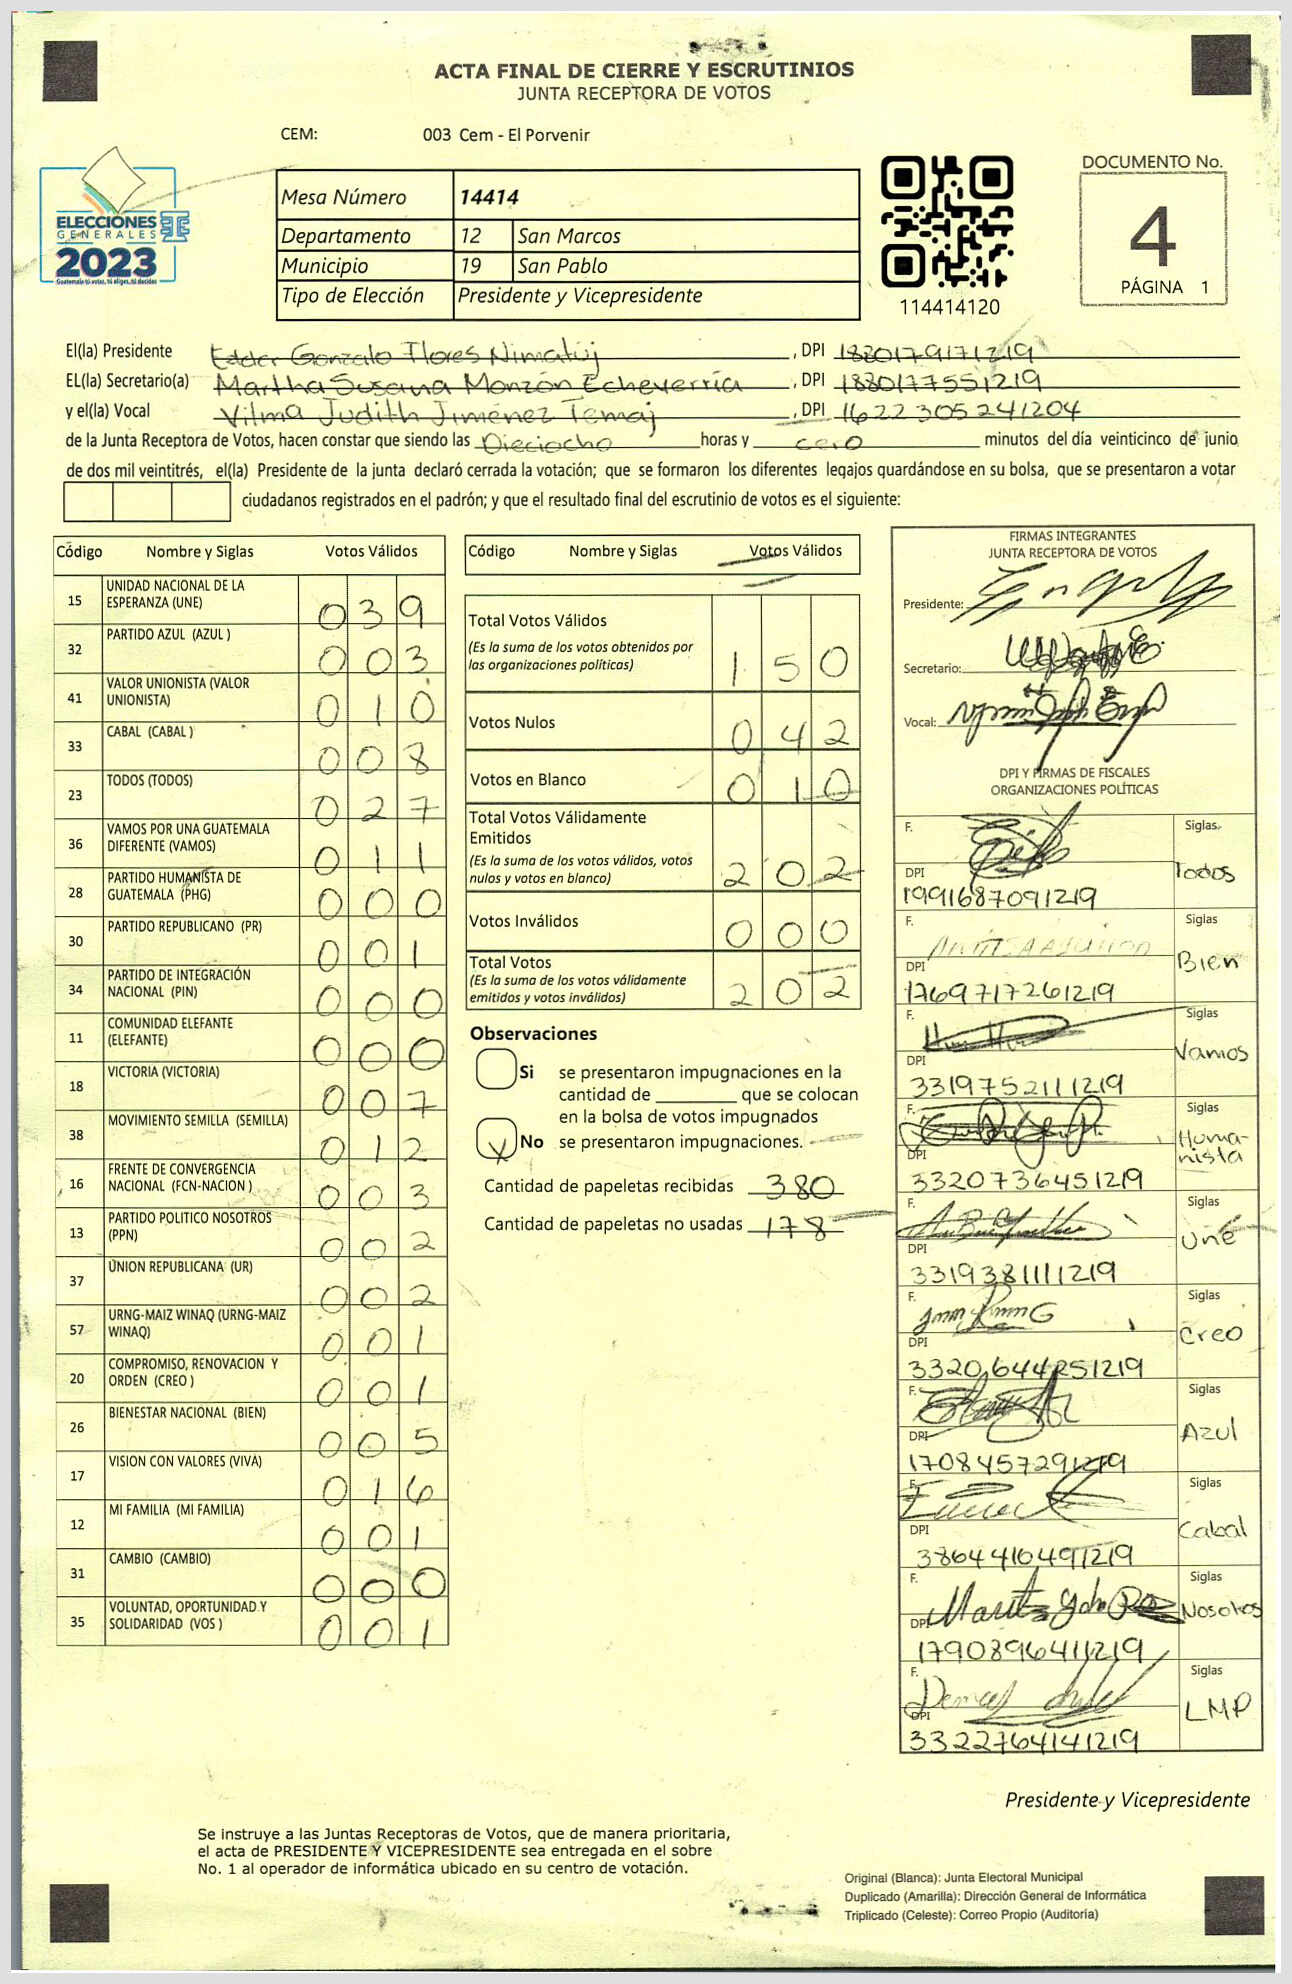 ACTA FINAL DE CIERRE Y ESCRUTINIOS
JUNTA RECEPTORA DE VOTOS
CEM: 003 Cem - El Porvenir
ELECCIONES
GENERALES
2023
Guatemala tú votas, tú eliges, tú decides
Mesa Número 14414
Departamento 12 San Marcos
Municipio 19 San Pablo
Tipo de Elección Presidente y Vicepresidente
114414120
DOCUMENTO No.
4
PÁGINA 1
El(la) Presidente Edder Gonzalo Flores Nimatúj, DPI 1820179171219
EL(la) Secretario(a) Martha Susana Monzón Echeverría, DPI 1880177551219
y el(la) Vocal Vilma Judith Jiménez Temaj, DPI 1622305241204
de la Junta Receptora de Votos, hacen constar que siendo las Dieciocho horas y cero minutos del día veinticinco de junio
de dos mil veintitrés, el(la) Presidente de la junta declaró cerrada la votación; que se formaron los diferentes legajos quardándose en su bolsa, que se presentaron a votar
ciudadanos registrados en el padrón; y que el resultado final del escrutinio de votos es el siguiente:
Código Nombre y Siglas Votos Válidos
15 UNIDAD NACIONAL DE LA ESPERANZA (UNE) 039
32 PARTIDO AZUL (AZUL ) 003
41 VALOR UNIONISTA (VALOR UNIONISTA) 010
33 CABAL (CABAL ) 008
23 TODOS (TODOS) 027
36 VAMOS POR UNA GUATEMALA DIFERENTE (VAMOS) 011
28 PARTIDO HUMANISTA DE GUATEMALA (PHG) 000
30 PARTIDO REPUBLICANO (PR) 001
34 PARTIDO DE INTEGRACIÓN NACIONAL (PIN) 000
11 COMUNIDAD ELEFANTE (ELEFANTE) 000
18 VICTORIA (VICTORIA) 007
38 MOVIMIENTO SEMILLA (SEMILLA) 012
16 FRENTE DE CONVERGENCIA NACIONAL (FCN-NACION ) 003
13 PARTIDO POLITICO NOSOTROS (PPN) 002
37 UNION REPUBLICANA (UR) 002
57 URNG-MAIZ WINAQ (URNG-MAIZ WINAQ) 001
20 COMPROMISO, RENOVACION Y ORDEN (CREO ) 001
26 BIENESTAR NACIONAL (BIEN) 005
17 VISION CON VALORES (VIVA) 016
12 MI FAMILIA (MI FAMILIA) 001
31 CAMBIO (CAMBIO) 000
35 VOLUNTAD, OPORTUNIDAD Y SOLIDARIDAD (VOS ) 001
Código Nombre y Siglas Votos Válidos
Total Votos Válidos 150
(Es la suma de los votos obtenidos por
las organizaciones políticas)
Votos Nulos 042
Votos en Blanco 010
Total Votos Válidamente
Emitidos 202
(Es la suma de los votos válidos, votos
nulos y votos en blanco)
Votos Inválidos 000
Total Votos 202
(Es la suma de los votos válidamente
emitidos y votos inválidos)
Observaciones
Si se presentaron impugnaciones en la
cantidad de ________ que se colocan
en la bolsa de votos impugnados
X No se presentaron impugnaciones.
Cantidad de papeletas recibidas 380
Cantidad de papeletas no usadas 178
FIRMAS INTEGRANTES
JUNTA RECEPTORA DE VOTOS
Presidente:
Secretario:
Vocal:
DPI Y FIRMAS DE FISCALES
ORGANIZACIONES POLÍTICAS
F. Siglas
DPI Todos
1991687091219
F. Siglas
DPI Bien
1769717261219
F. Siglas
DPI Vamos
3319752111219
F. Siglas
DPI Humanista
3320736451219
F. Siglas
DPI Une
3319381111219
F. Siglas
DPI Creo
3320644251219
F. Siglas
DPI Azul
1708457291219
F. Siglas
DPI Cabal
3864410491219
F. Siglas
DPI Nosotros
1790896411219
F. Siglas
DPI LMP
3322764141219
Presidente y Vicepresidente
Se instruye a las Juntas Receptoras de Votos, que de manera prioritaria,
el acta de PRESIDENTE Y VICEPRESIDENTE sea entregada en el sobre
No. 1 al operador de informática ubicado en su centro de votación.
Original (Blanca): Junta Electoral Municipal
Duplicado (Amarilla): Dirección General de Informática
Triplicado (Celeste): Correo Propio (Auditoría)